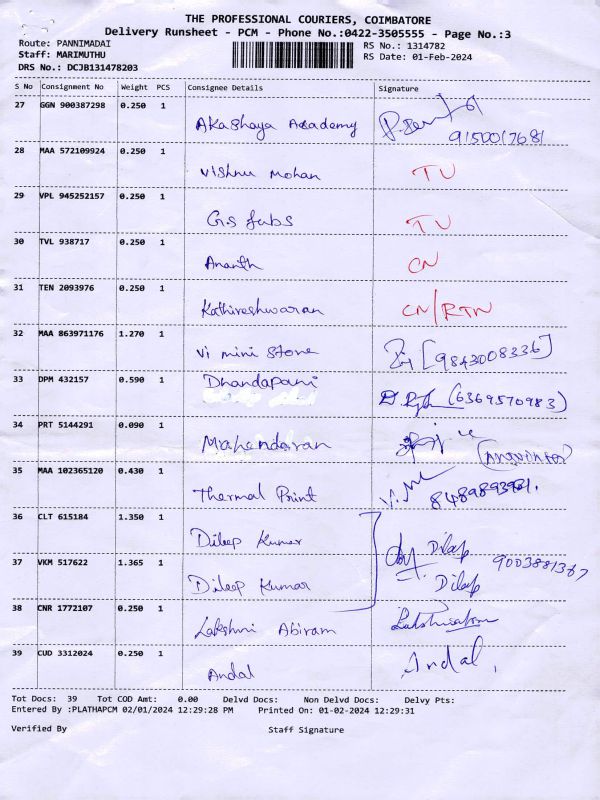 THE PROFESSIONAL COURIERS, COIMBATORE
Delivery Runsheet - PCM - Phone No.:0422-3505555 - Page No.:3
Route: PANNIMADAI RS No.: 1314782
Staff: MARIMUTHU RS Date: 01-Feb-2024
DRS No.: DCJB131478203
S No Consignment No Weight PCS Consignee Details Signature
27 GGN 900387298 0.250 1
Akashaya Academy 9150017681
28 MAA 572109924 0.250 1
Vishnu Mohan TU
29 VPL 945252157 0.250 1
G.S fabs TU
30 TVL 938717 0.250 1
Ananth CN
31 TEN 2093976 0.250 1
Kathireshwaran CN/RTN
32 MAA 863971176 1.270 1
Vi mini Stone [9843008336]
33 DPM 432157 0.590 1
Dhandapani (6369570983)
34 PRT 5144291 0.090 1
Mahendaran
35 MAA 102365120 0.430 1
Thermal Print
36 CLT 615184 1.350 1
Dileep Kumar Dileep 9003881367
37 VKM 517622 1.365 1
Dileep Kumar Dileep
38 CNR 1772107 0.250 1
Lakshmi Abiram
39 CUD 3312024 0.250 1
Andal Andal
Tot Docs: 39 Tot COD Amt: 0.00 Delvd Docs: Non Delvd Docs: Delvy Pts:
Entered By :PLATHAPCM 02/01/2024 12:29:28 PM Printed On: 01-02-2024 12:29:31
Verified By Staff Signature